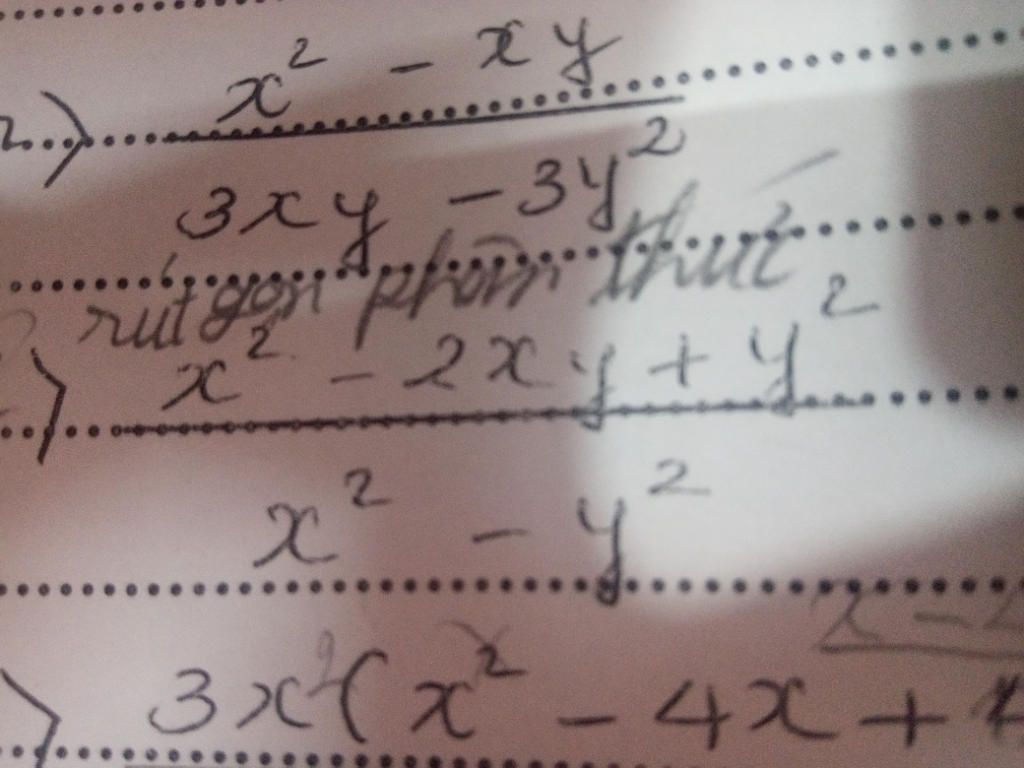 x² - xy
3xy - 3y²
rút gọn phân thức
x² - 2xy + y²
x² - y²
3x²(x² - 4x +